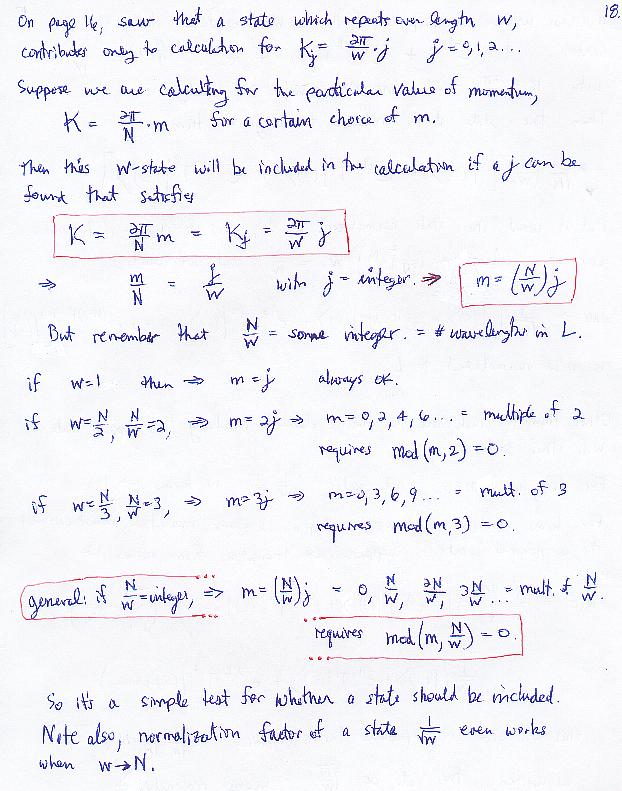 18.
On page 16, saw that a state which repeats over length W,
contributes only to calculation for K_j = 2π/W · j   j = 0, 1, 2...
Suppose we are calculting for the particular value of momentum,
K = 2π/N · m   for a certain choice of m.
Then this W-state will be included in the calculation if a j can be
found that satisfies
K = 2π/N m = K_j = 2π/W j
⇒ m/N = j/W   with j = integer. ⇒ m = (N/W) j
But remember that N/W = some integer. = # wavelengths in L.
if w=1 then ⇒ m = j   always ok.
if w = N/2, N/W = 2, ⇒ m = 2j ⇒ m = 0, 2, 4, 6... = multiple of 2
requires mod(m,2) = 0.
if w = N/3, N/W = 3, ⇒ m = 3j ⇒ m = 0, 3, 6, 9... = mult. of 3
requires mod(m,3) = 0.
general: if N/W = integer, ⇒ m = (N/W) j = 0, N/W, 2N/W, 3N/W ... = mult. of N/W.
requires mod(m, N/W) = 0.
So it's a simple test for whether a state should be included.
Note also, normalization factor of a state 1/√W even works
when w→N.